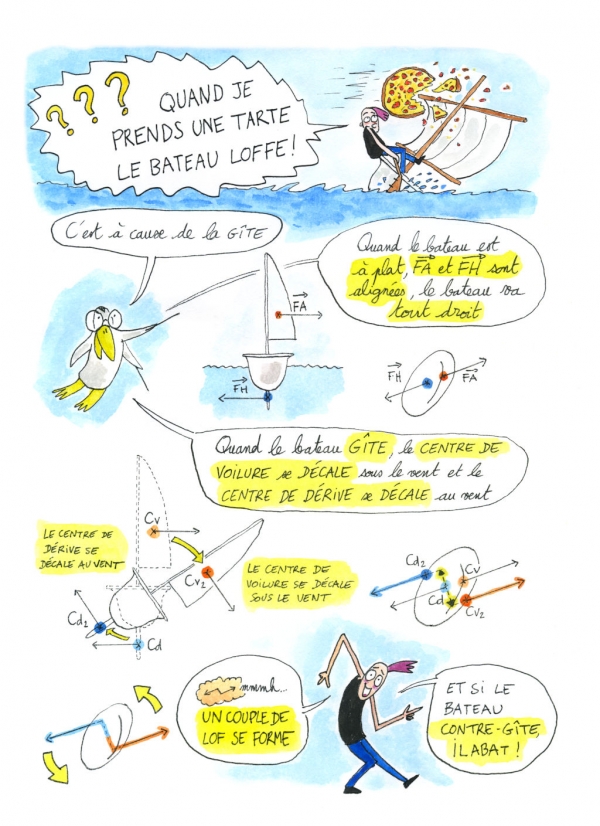 ???
QUAND JE
PRENDS UNE TARTE
LE BATEAU LOFFE!
C'est à cause de la GÎTE
Quand le bateau est
à plat, FA et FH sont
alignées, le bateau va
tout droit
FA
FH
FH
FA
Quand le bateau GÎTE, le CENTRE DE
VOILURE se DÉCALE sous le vent et le
CENTRE DE DÉRIVE se DÉCALE au vent
LE CENTRE DE
DÉRIVE SE
DÉCALE AU VENT
Cv
Cv2
Cd2
Cd
LE CENTRE DE
VOILURE SE DÉCALE
SOUS LE VENT
Cd2
Cv
Cd
Cv2
mmmh...
UN COUPLE DE
LOF SE FORME
ET SI LE
BATEAU
CONTRE-GÎTE,
IL ABAT !